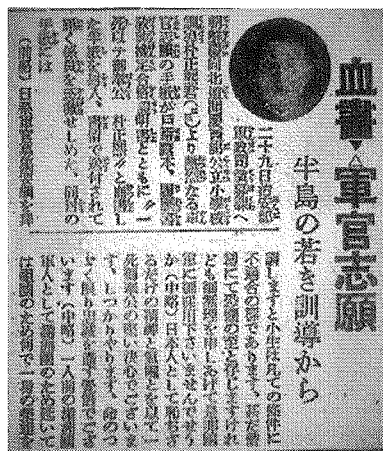 血書 軍官志願
半島の若き訓導から
二十九日治安部
軍政司徴募課へ
朝鮮慶尚北道聞慶西部公立小学校
訓導朴正熙君
官志願の手紙が戸籍謄本、履歴書
教練検定合格証明書とともに〃一
死以テ御奉公 朴正熙〃と血書し
た半紙を封入、書留で送付されて
感激せしめた、同封の
手紙には
日系軍官募集要綱を拝
訓しますと小生は凡ての條件に
不適合の様であります、甚だ僭
越にて恐懼の至と存じますけれ
ども御無理を申しあげて是非國
軍に御採用下さいませんでせう
か(中略)日本人として恥ぢざ
るだけの精神と氣魄とを以て一
死御奉公の堅い決心でございま
す、しつかりやります、命のつ
づく限り忠誠を盡す覺悟でござ
います(中略)一人前の滿洲國
軍人として滿洲國のため延いて
は祖國のため何で一身の榮達を